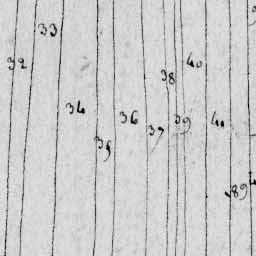 33
32
40
38
34
36
39
41
37
35
89